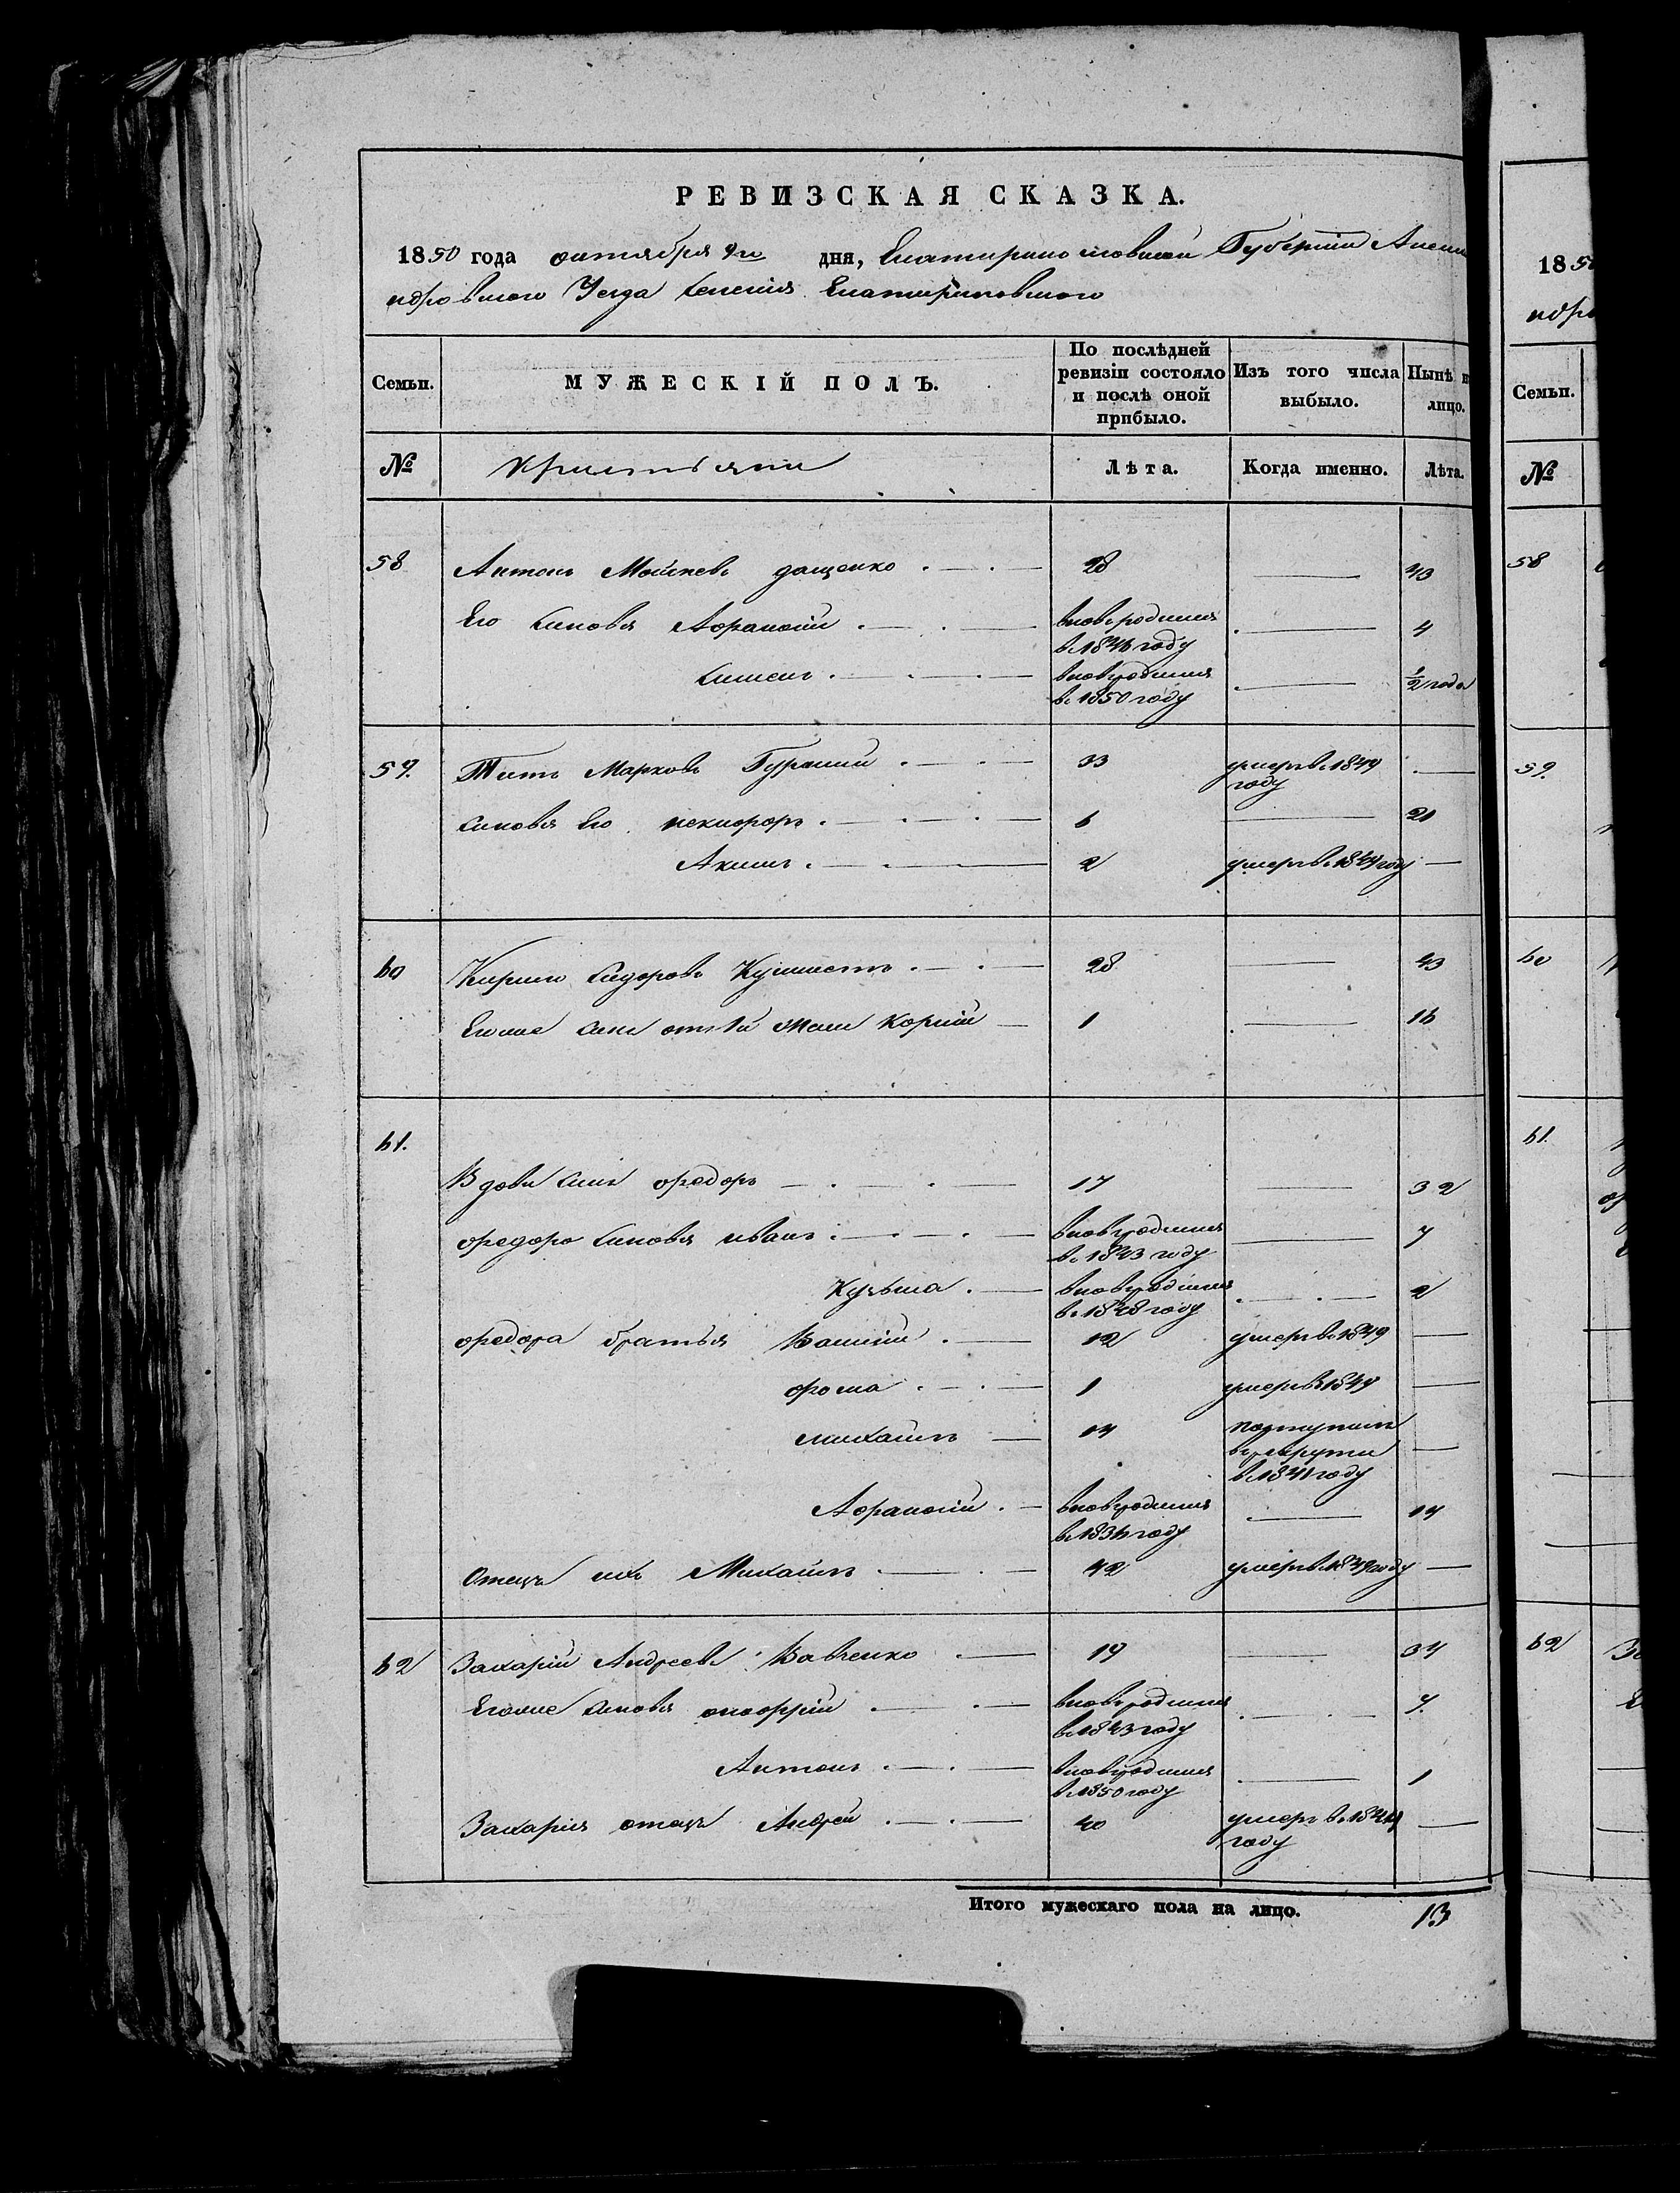 РЕВИЗСКАЯ СКАЗКА.
1850 года октября 9го дня, Екатеринославской Губерніи Алекса
ндровскаго Уезда селенія Екатериновскаго
Семьи.
МУЖЕСКІЙ ПОЛЪ.
По послѣдней ревизіи состояло и послѣ оной прибыло.
Изъ того числа выбыло.
Нынѣ н лицо.
№ Крестьяни Лѣта. Когда именно. Лѣта.
58 Антонъ Мойсеевъ дащенко 28 43
Его синовя Афанасій вновь родился 4
в 1846 году
Симеон вновь родился ½ года
в 1850 году
59. Титъ Марковъ Гурскій 33 умеръ в 1849
году
синовя Его никифоръ 6 21
Акимъ 2 умеръ в 1849 году
60 Кирило Сидоровъ 28 43
Егоже синъ отъ 1й жени Корній 1 16
61.
Вдови синъ федоръ 17 32
федора синовя иванъ вновь родился 7
в 1843 году
Кузьма вновь родился 2
в 1848 году
федора братья Василій 12 умеръ в 1849
фома 1 умеръ в 1849
михаилъ 14 поступилъ
в рекрути
в 1841 году
Афанасій вновь родился 14
в 1836 году
Отецъ ихъ Михаилъ 42 умеръ в 1849 году
62 Захарій Андреевъ Вавченко 19 34
Егоже синовя онофрій вновь родился 7.
в 1843 году
Антонъ вновь родился 1
в 1850 году
Захарія отецъ Андрей 40 умеръ в 1844
году
Итого мужескаго пола на лицо. 13
1850
ндро
Семьи.
№
58
59.
60
61
62